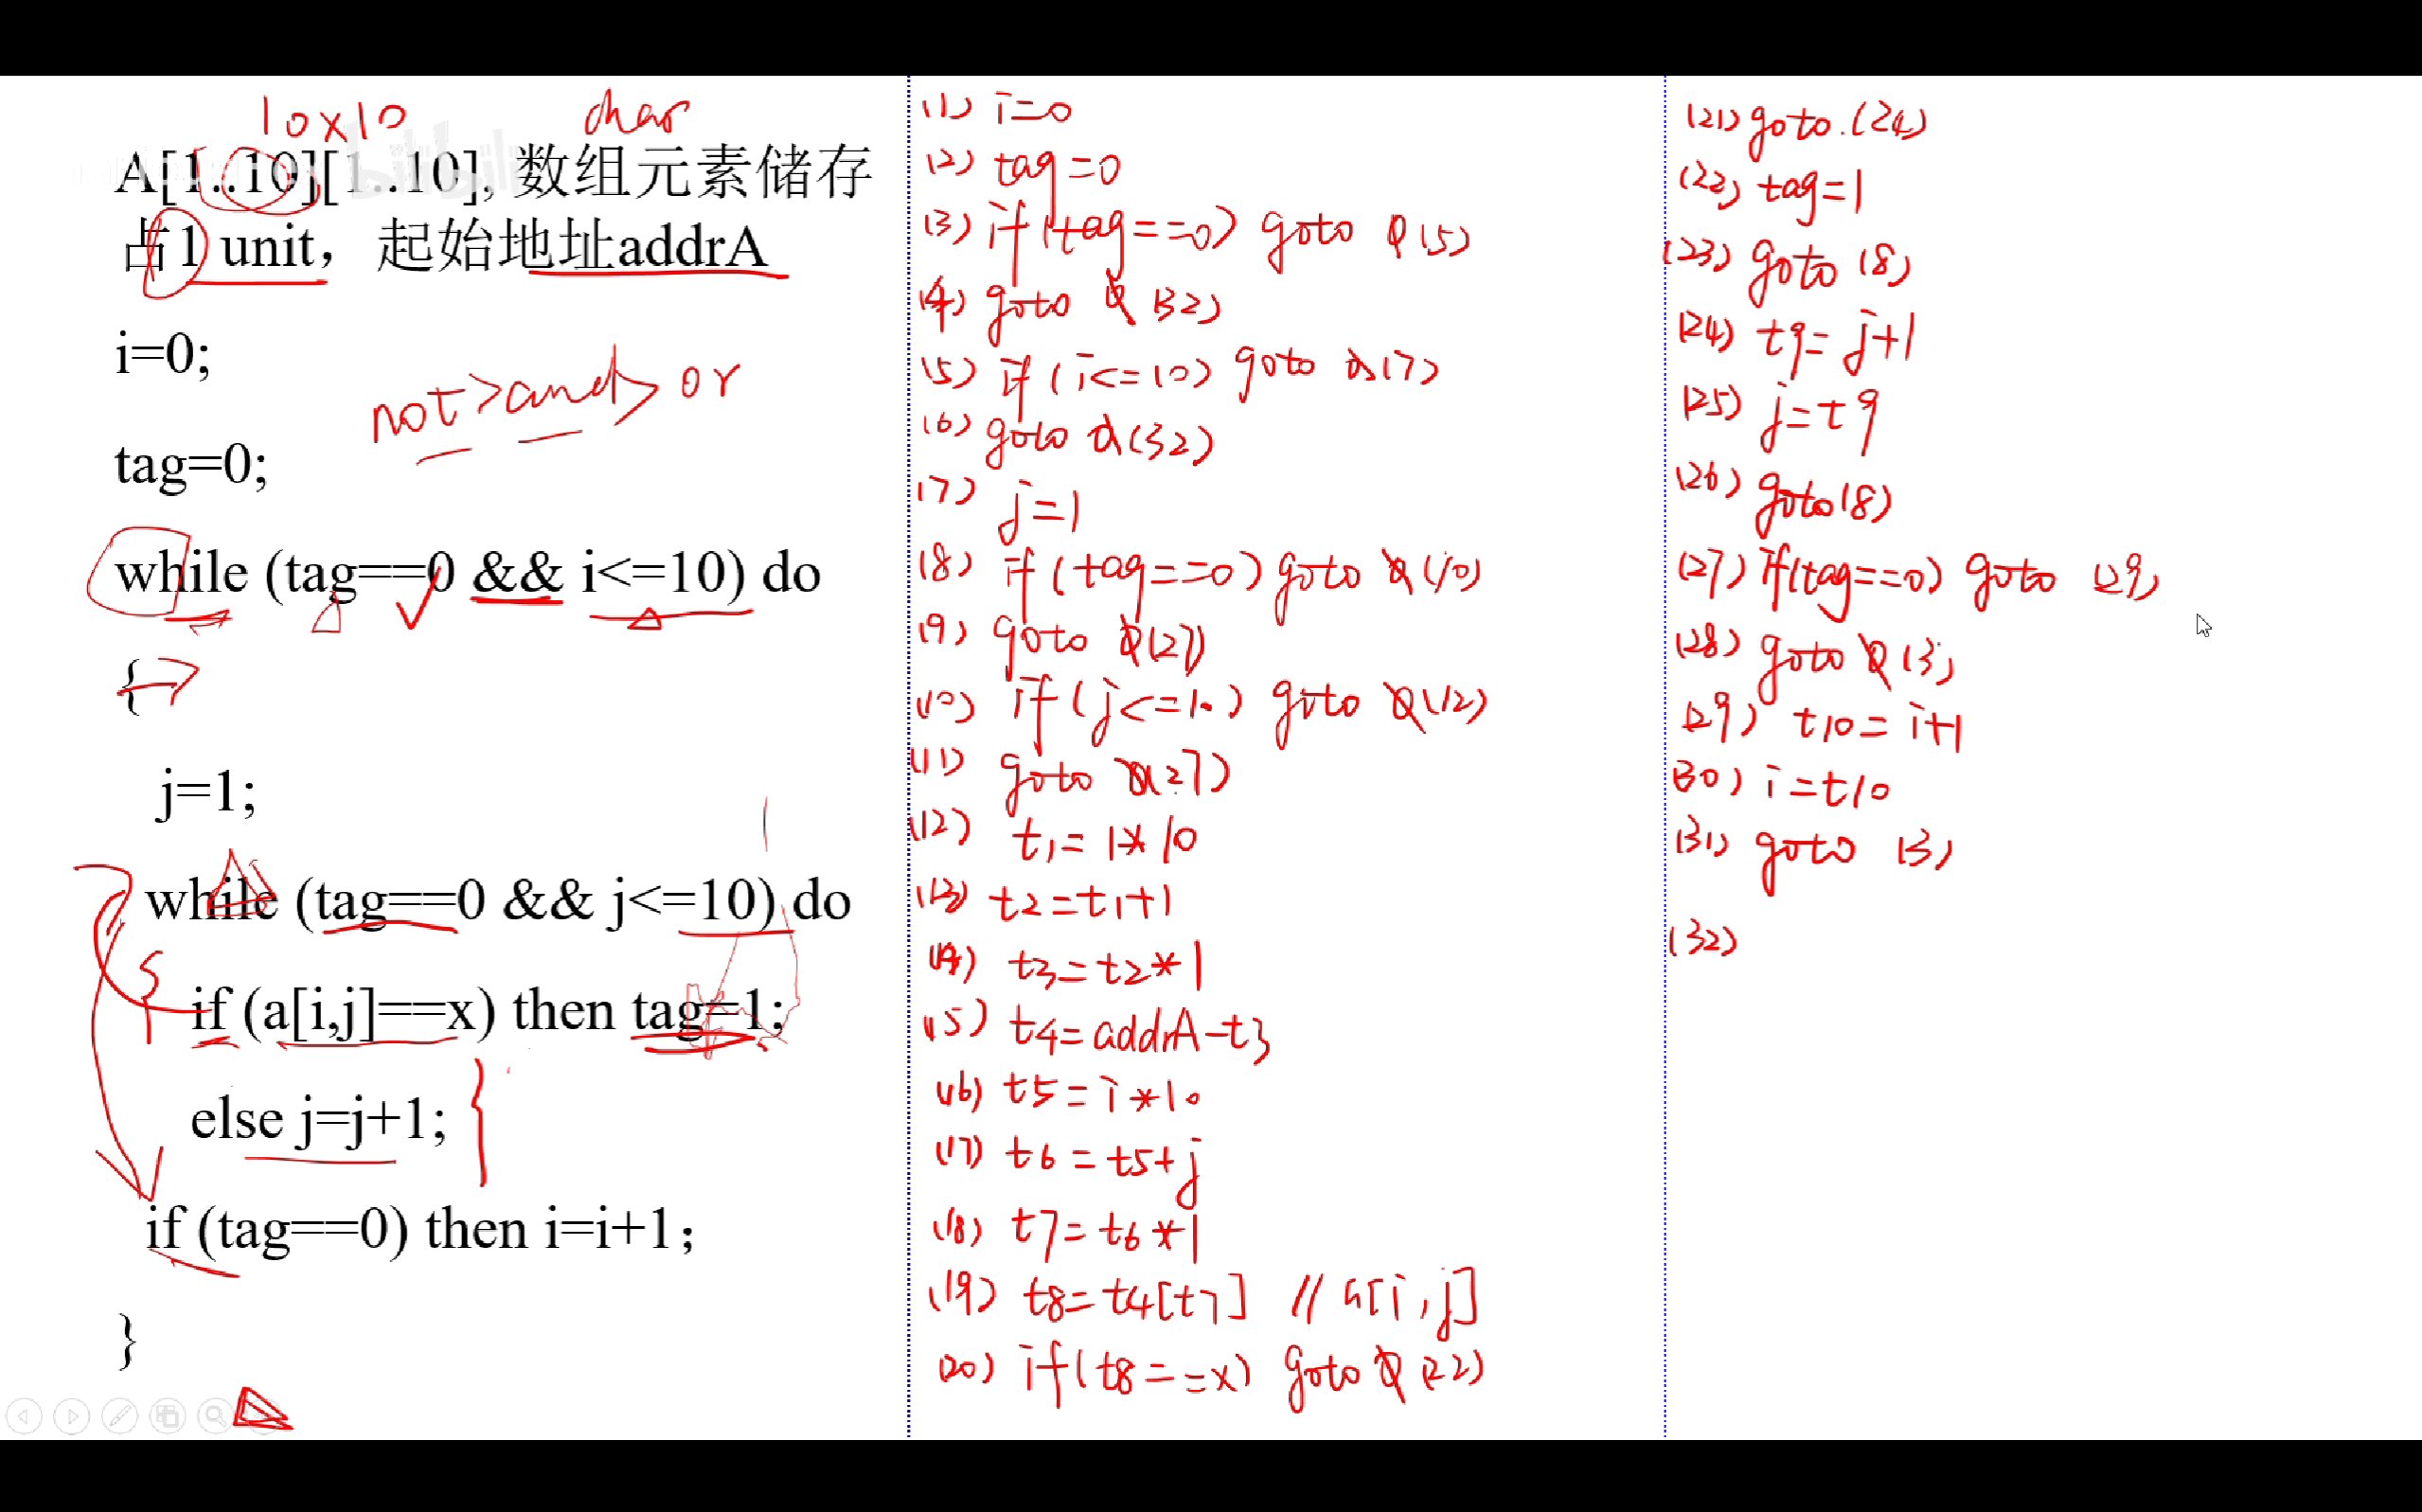 10×10 char
A[1..10][1..10], 数组元素储存
占1 unit, 起始地址addrA
i=0;
not>and>or
tag=0;
while (tag==0 && i<=10) do
{
j=1;
while (tag==0 && j<=10) do
if (a[i,j]==x) then tag=1;
else j=j+1;
if (tag==0) then i=i+1;
}
(1) i=0
(2) tag=0
(3) if(tag==0) goto 0(5)
(4) goto 0 (32)
(5) if(i<=10) goto 0(7)
(6) goto 0(32)
(7) j=1
(8) if(tag==0) goto 0(10)
(9) goto 0(27)
(10) if(j<=10) goto 0(12)
(11) goto 0(27)
(12) t1=1*10
(13) t2=t1+1
(14) t3=t2*1
(15) t4=addrA-t3
(16) t5=i*10
(17) t6=t5+j
(18) t7=t6*1
(19) t8=t4[t7] //a[i,j]
(20) if(t8==x) goto 0(22)
(21) goto.(24)
(22) tag=1
(23) goto (8)
(24) t9=j+1
(25) j=t9
(26) goto(8)
(27) if(tag==0) goto (29)
(28) goto 0(3)
(29) t10=i+1
(30) i=t10
(31) goto (3)
(32)